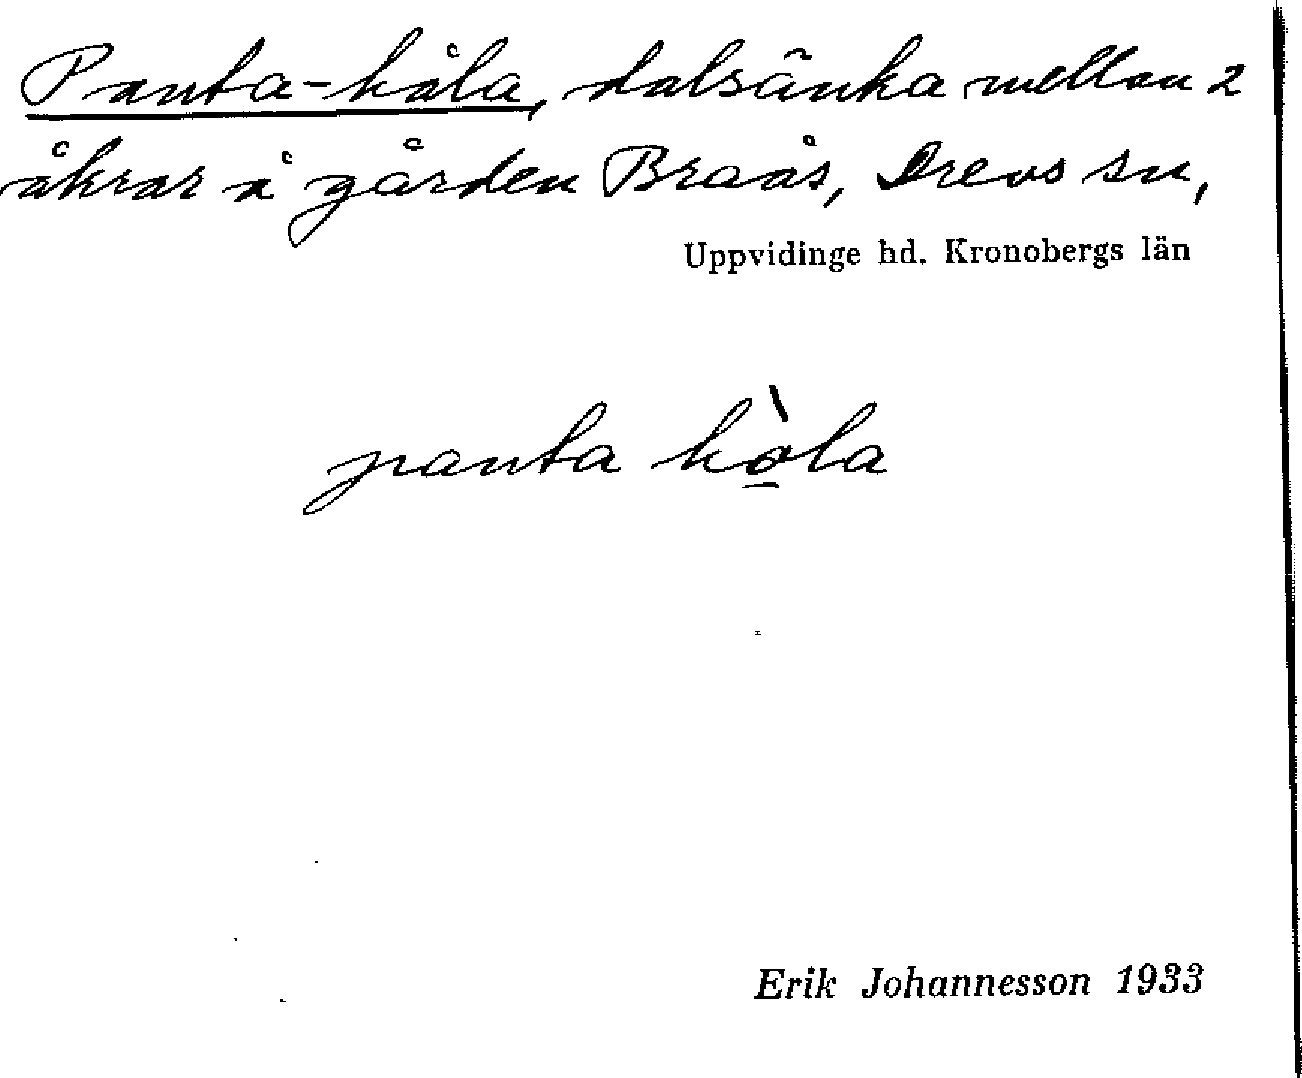 Panta-håla, dalsänka mellan 2
åkrar å gården Braås, Drevs sn,
Uppvidinge hd. Kronobergs län
panta hòla
Erik Johannesson 1933